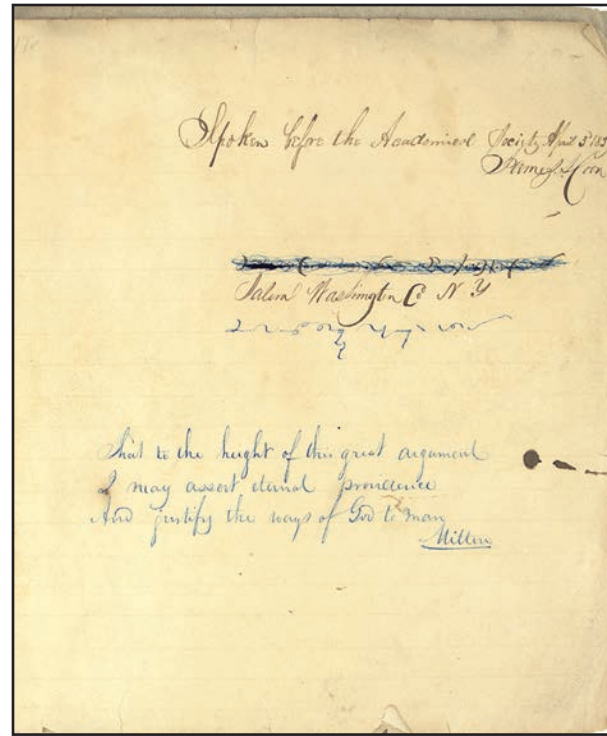 Spoken before the Academical Society April
James Coon
Salem Washington Co N Y
That to the height of this great argument
I may assert eternal providence
And justify the ways of God to man
Milton